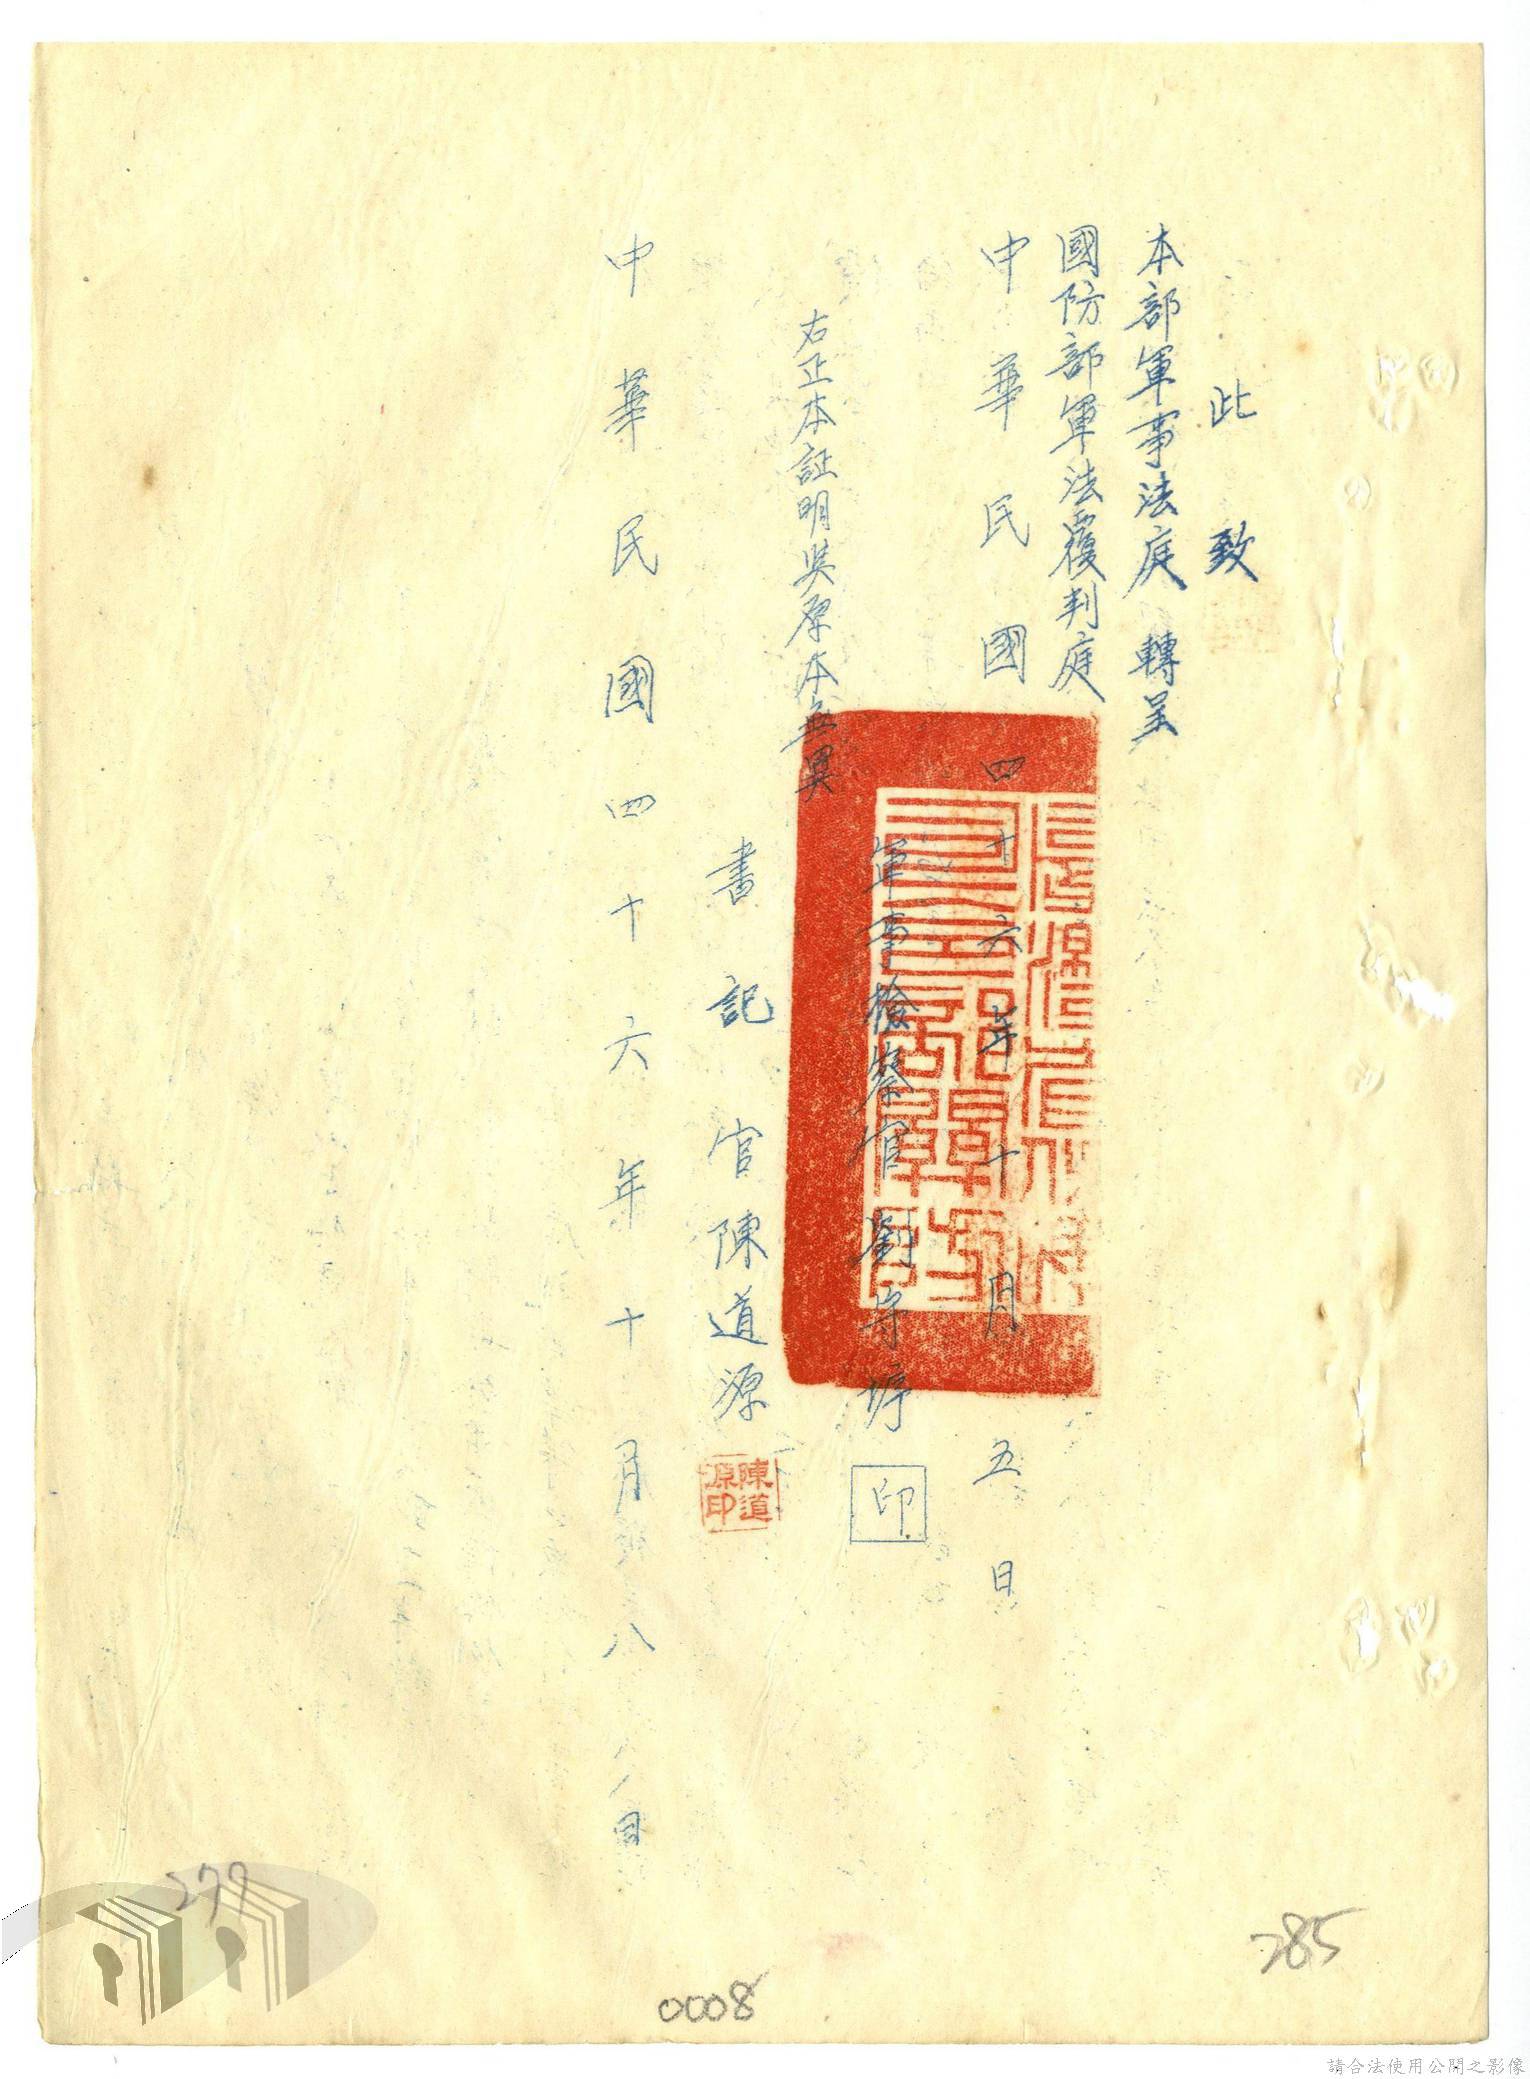 此致
本部軍事法庭 轉呈
國防部軍法覆判庭
中華民國四十六年十月五日
軍事檢察官劉守埒 印
右正本証明與原本無異
書記官陳道源
陳道源印
中華民國四十六年十月八日
277
285
0008
請合法使用公開之影像